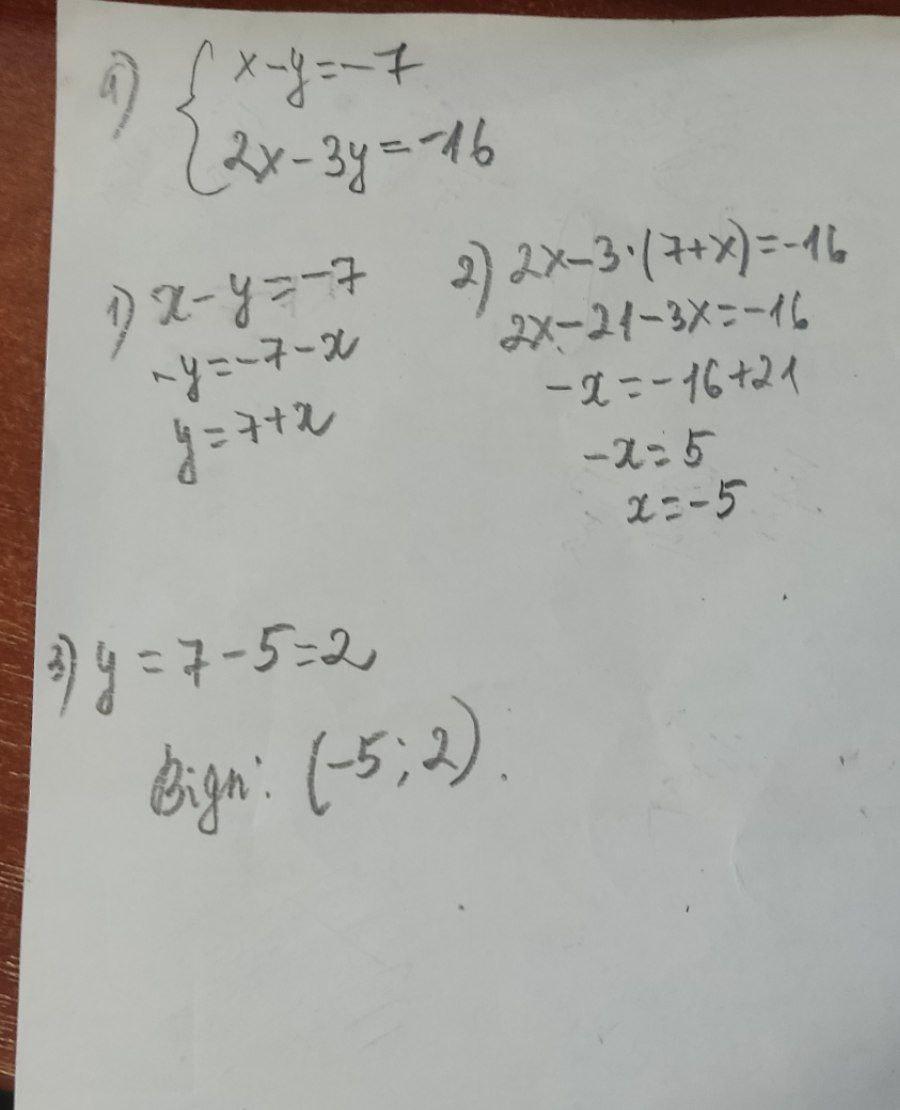 а) { x-y=-7
2x-3y=-16
1) x-y=-7
-y=-7-x
y=7+x
2) 2x-3·(7+x)=-16
2x-21-3x=-16
-x=-16+21
-x=5
x=-5
3) y=7-5=2
Відп: (-5;2).